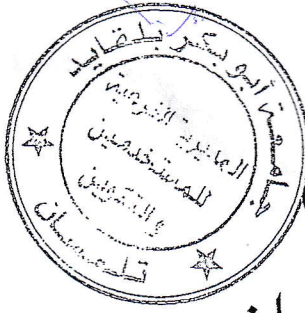 جامعة أبو بكر بلقايد
المديرية الفرعية
للمستخدمين
والتكوين
تلمسان